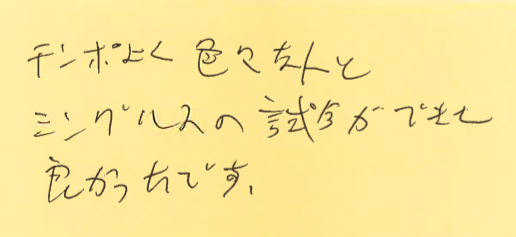 テンポよく色々な人と
シングルスの試合ができて
良かったです。